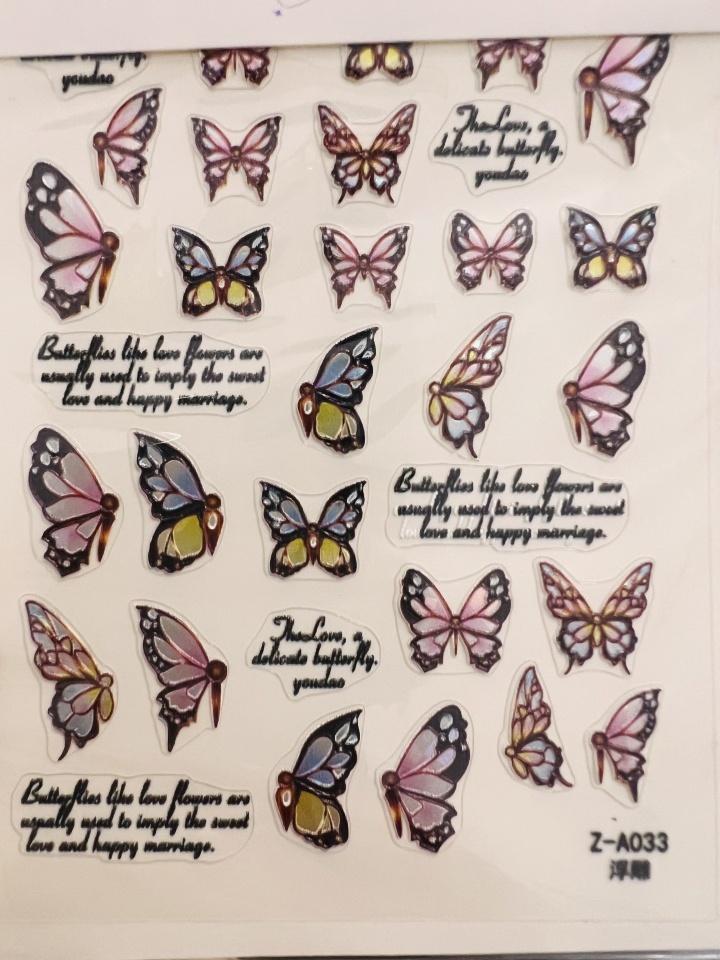 delicate butterfly.
youdao
The Love, a
delicate butterfly.
youdao
Butterflies like love flowers are
usually used to imply the sweet
love and happy marriage.
Butterflies like love flowers are
usually used to imply the sweet
love and happy marriage.
The Love, a
delicate butterfly.
youdao
Butterflies like love flowers are
usually used to imply the sweet
love and happy marriage.
Z-A033
浮雕